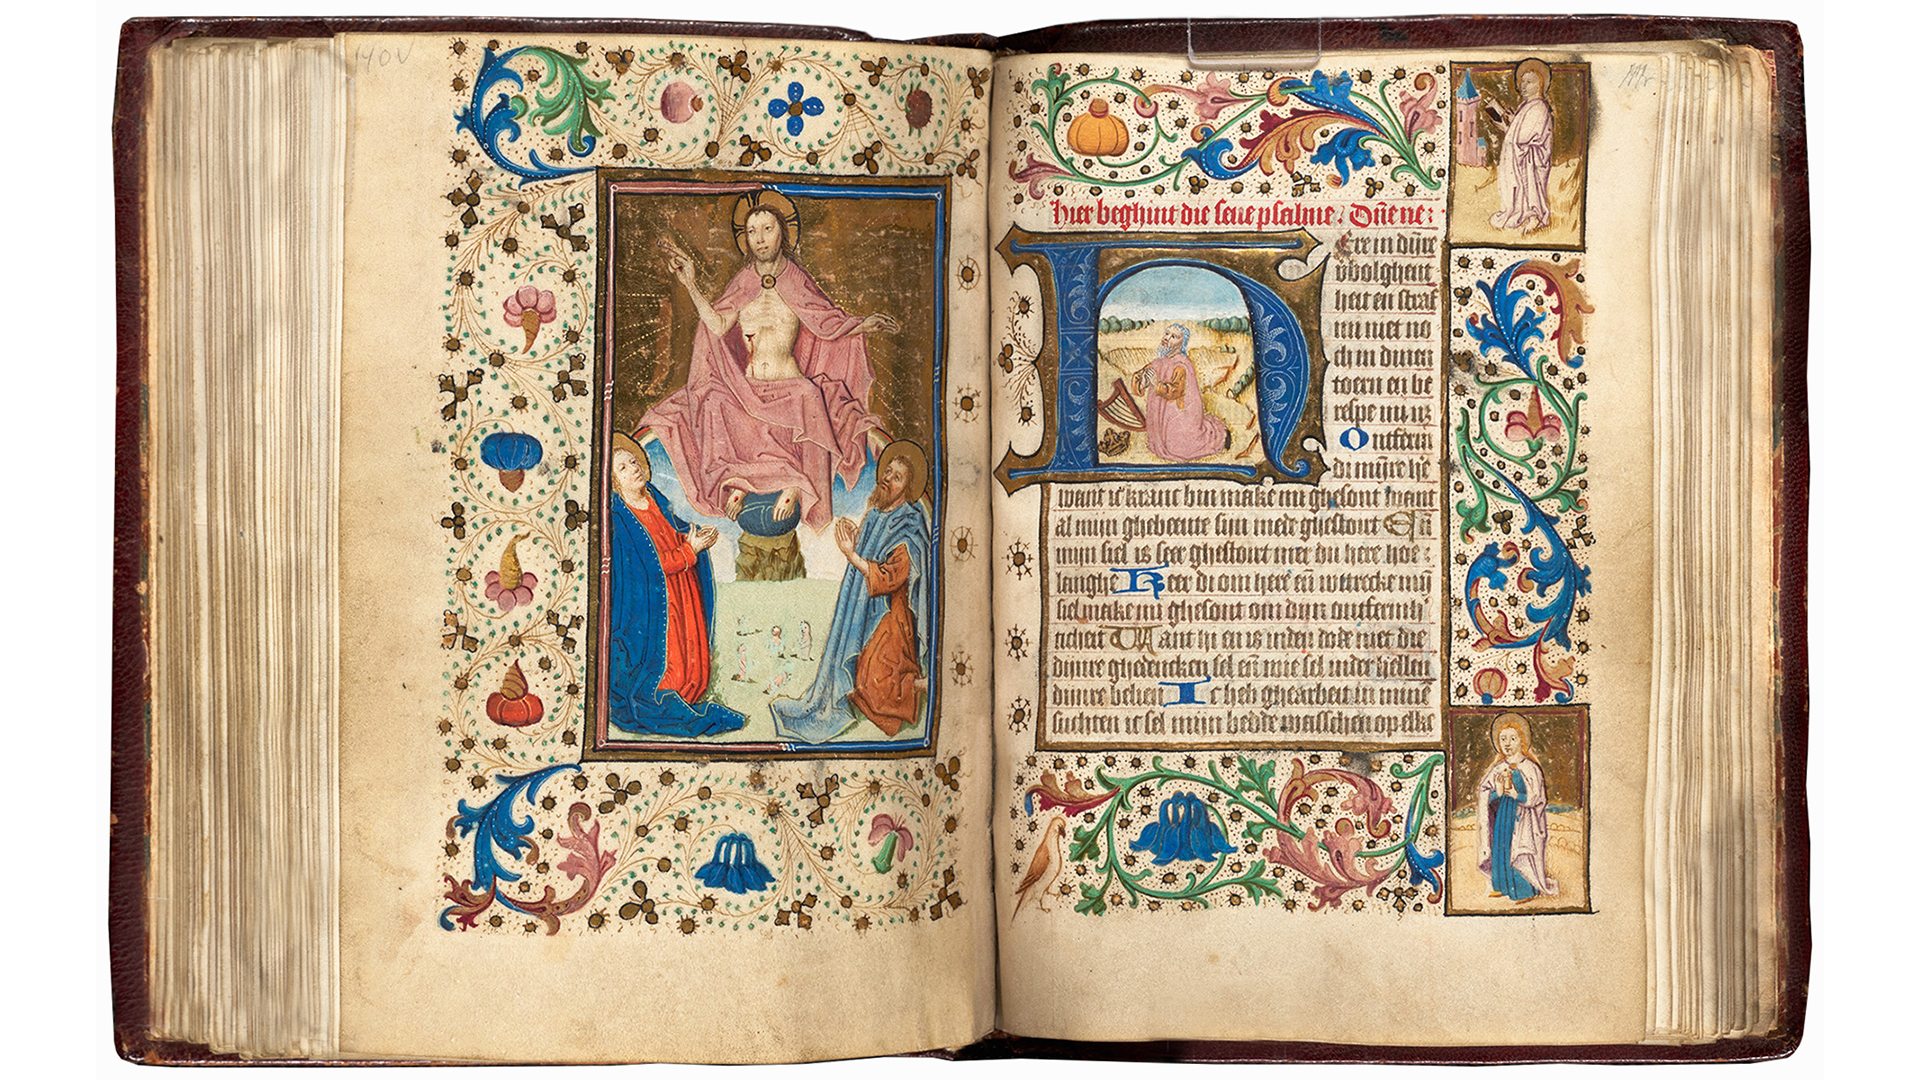 140v
hier beghint die seue psalme. Dñene:
HEre in dijnre
vbolghent
heit en straf
mi niet no
ch in dinen
toern en be
respe mi n;
Ontferm
di mijnre hē
want ic kranc bin make mi ghesont want
al mijn ghebeente sijn mede ghestoort Eñ
mijn siel is seer ghestoort mer du here hoe:
langhe Keer di om here eñ wttrecke mijn
siel make mi ghesont om dijnre ontfermh'
ticheit Want hi en is inden dode niet die
dijnre ghedencken sel eñ wie sel in der hellen
dijnre belien Ic heb ghearbeit in minē
suchten ic sel mijn bedde wasschen op elke